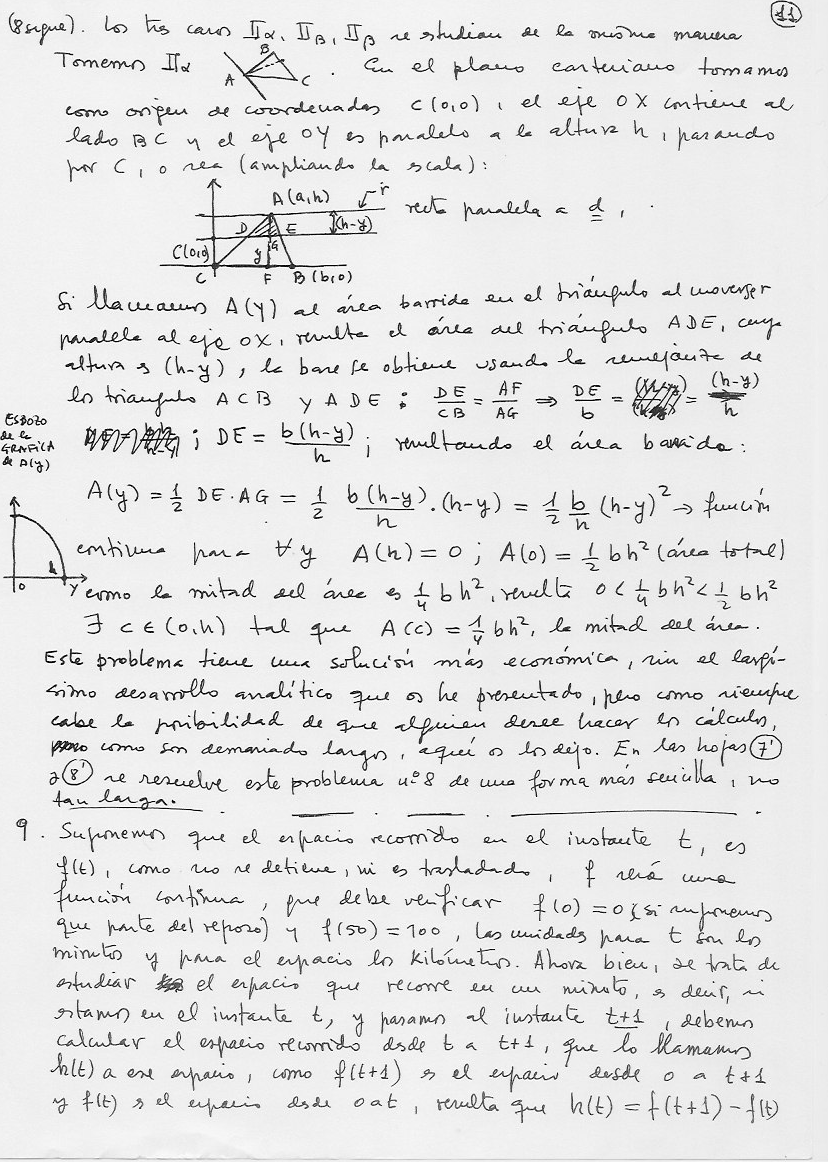 11
(8 sigue). Los tres casos IIα, IIB, IIβ se estudian de la misma manera
Tomemos IIα A B C . En el plano cartesiano tomamos
como origen de coordenadas C(0,0), el eje OX contiene al
lado BC y el eje OY es paralelo a la altura h, pasando
por C, o sea (ampliando la escala):
A(a,h) r
recta paralela a d,
D E (h-y)
C(0,0) y G
C F B(b,0)
Si llamamos A(y) al área barrida en el triángulo al moverse
paralela al eje OX, resulta el área del triángulo ADE, cuya
altura es (h-y), la base se obtiene usando la semejanza de
los triangulo ACB y ADE : DE/CB = AF/AG ⇒ DE/b = = (h-y)/h
ESBOZO
de la
GRAFICA
de A(y)
; DE = b(h-y)/h ; resultando el área barrida:
A(y) = 1/2 DE·AG = 1/2 b(h-y)/h · (h-y) = 1/2 b/h (h-y)² → función
continua para ∀y A(h) = 0 ; A(0) = 1/2 bh² (área total)
0 h Y
como la mitad del área es 1/4 bh², resulta 0 < 1/4 bh² < 1/2 bh²
∃ c ∈ (0,h) tal que A(c) = 1/4 bh², la mitad del área.
Este problema tiene una solución más económica, sin el largí-
simo desarrollo analítico que os he presentado, pero como siempre
cabe la posibilidad de que alguien desee hacer los cálculos,
como son demasiado largos, aquí os los dejo. En las hojas 7'
a 8' se resuelve este problema nº 8 de una forma más sencilla, no
tan larga.
9. Suponemos que el espacio recorrido en el instante t, es
f(t), como no se detiene, ni es trasladado, f será una
función continua, que debe verificar f(0) = 0 (si suponemos
que parte del reposo) y f(50) = 100, las unidades para t son los
minutos y para el espacio los Kilómetros. Ahora bien, se trata de
estudiar el espacio que recorre en un minuto, es decir, si
estamos en el instante t, y pasamos al instante t+1, debemos
calcular el espacio recorrido desde t a t+1, que lo llamamos
h(t) a ese espacio, como f(t+1) es el espacio desde 0 a t+1
y f(t) es el espacio desde 0 a t, resulta que h(t) = f(t+1) - f(t)